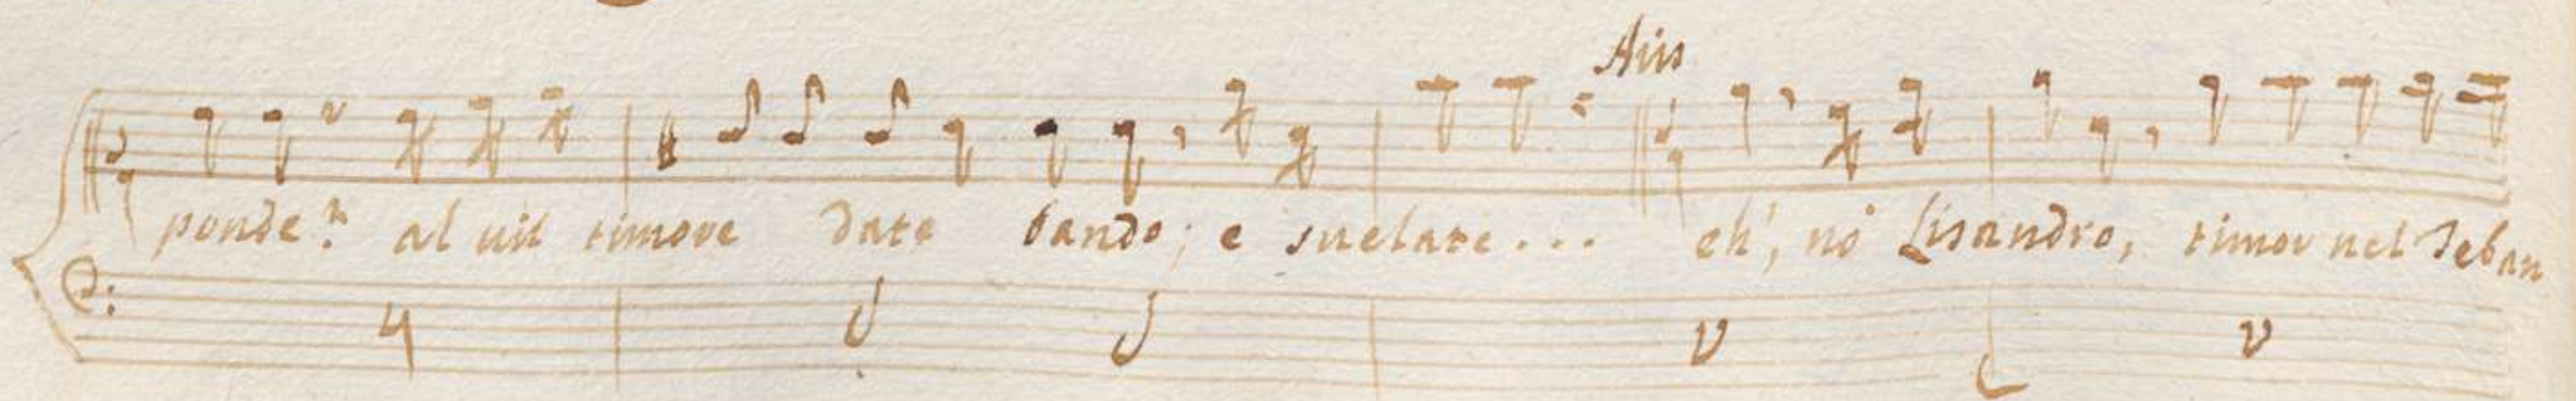 Aris
ponde? al uil timore date bando; e suelate... eh', nò Lisandro, timor nel seban